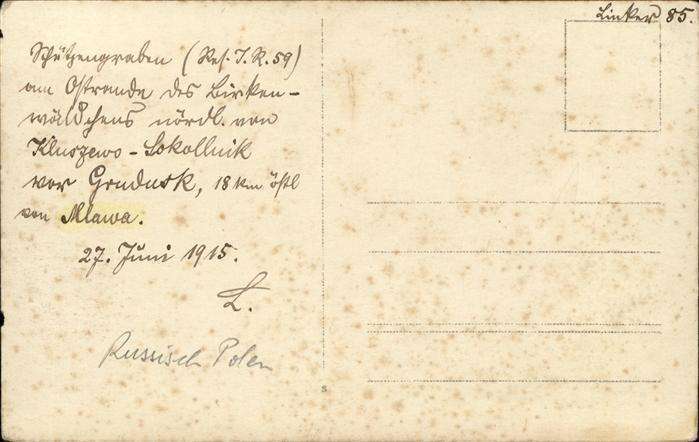 Linker 85.
Schützengraben (Res. I. R. 59)
am Ostrande des Birken-
wäldchens nördl. von
Kluszewo - Sokollnik
vor Grudusk, 18 km östl
von Mlawa.
27. Juni 1915.
L.
Russisch Polen
S